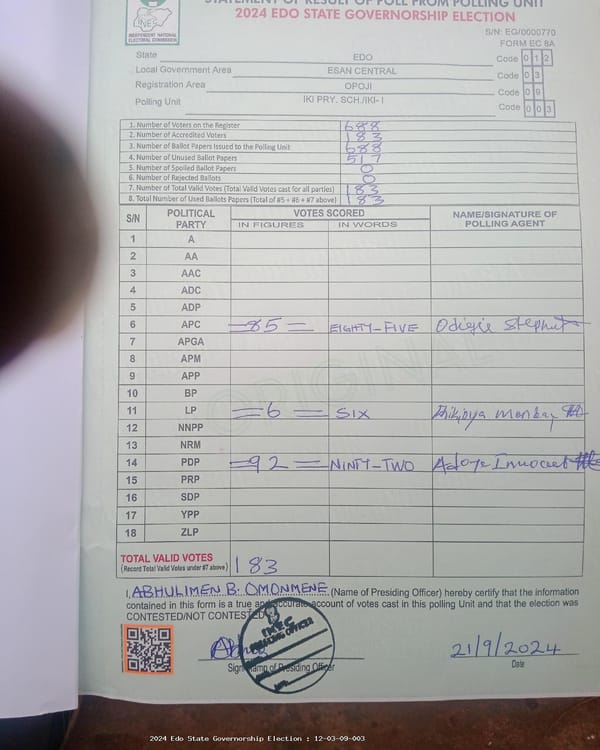 STATEMENT OF RESULT OF POLL FROM POLLING UNIT
2024 EDO STATE GOVERNORSHIP ELECTION
INEC
INDEPENDENT NATIONAL ELECTORAL COMMISSION
S/N: EG/0000770
FORM EC 8A
State EDO Code 0 1 2
Local Government Area ESAN CENTRAL Code 0 3
Registration Area OPOJI Code 0 9
Polling Unit IKI PRY. SCH./IKI- I Code 0 0 3
1. Number of Voters on the Register 688
2. Number of Accredited Voters 183
3. Number of Ballot Papers Issued to the Polling Unit 688
4. Number of Unused Ballot Papers 517
5. Number of Spoiled Ballot Papers 0
6. Number of Rejected Ballots 0
7. Number of Total Valid Votes (Total Valid Votes cast for all parties) 183
8. Total Number of Used Ballots Papers (Total of #5 + #6 + #7 above) 183
S/N POLITICAL PARTY VOTES SCORED NAME/SIGNATURE OF POLLING AGENT
IN FIGURES IN WORDS
1 A
2 AA
3 AAC
4 ADC
5 ADP
6 APC =85= EIGHTY-FIVE Odigie
7 APGA
8 APM
9 APP
10 BP
11 LP =6= SIX Monday
12 NNPP
13 NRM
14 PDP =92= NINTY-TWO Innocent
15 PRP
16 SDP
17 YPP
18 ZLP
ORIGINAL
TOTAL VALID VOTES 183
(Record Total Valid Votes under #7 above)
I, ABHULIMEN B. OMONMENE (Name of Presiding Officer) hereby certify that the information
contained in this form is a true and accurate account of votes cast in this polling Unit and that the election was
CONTESTED/NOT CONTESTED
INEC
PRESIDING OFFICER
Sign/Stamp of Presiding Officer
21/9/2024
Date
2024 Edo State Governorship Election : 12-03-09-003